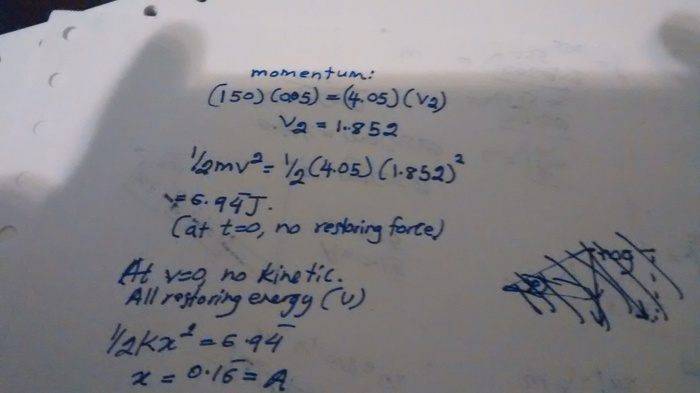 momentum:
(150)(005)=(4.05)(V2)
V2 = 1.852
1/2mv² = 1/2(4.05)(1.852)²
= 6.94J.
(at t=0, no restoring force)
At v=0, no kinetic.
All restoring energy (U)
1/2Kx² = 6.94
x = 0.16 = A